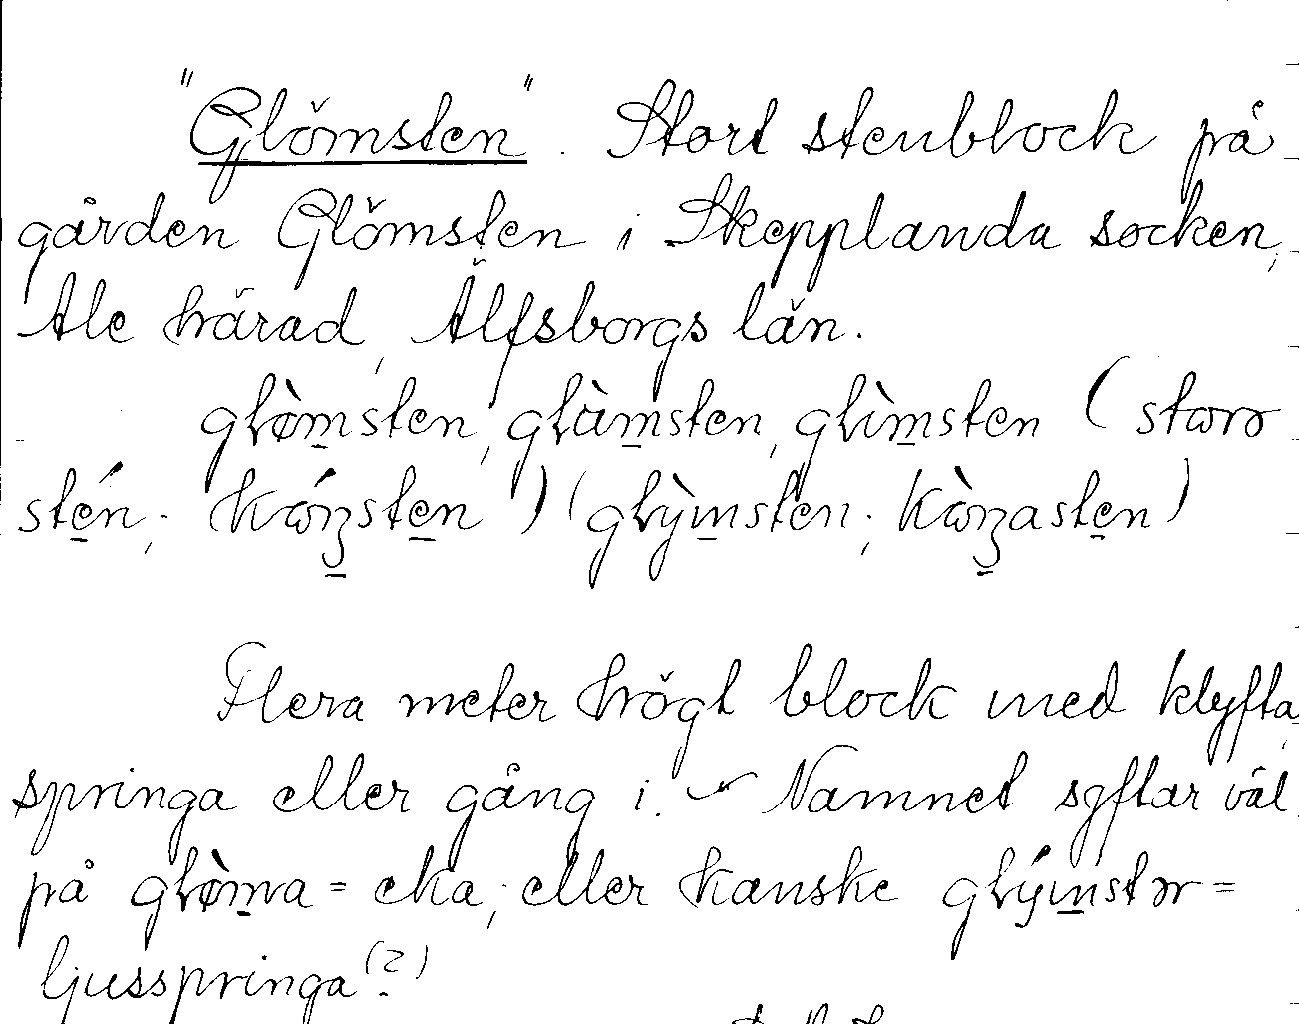 "Glömsten". Stort stenblock på
gården Glömsten i Skepplanda socken,
Ale härad, Älfsborgs län.
glø̀msten, glùmsten, glìmsten (
stén; ) (glỳmsten;
Flera meter högt block med klyfta,
springa eller gång i. – Namnet syftar väl
på glø̀ma = eka; eller kanske glýmstər =
ljusspringa (?)